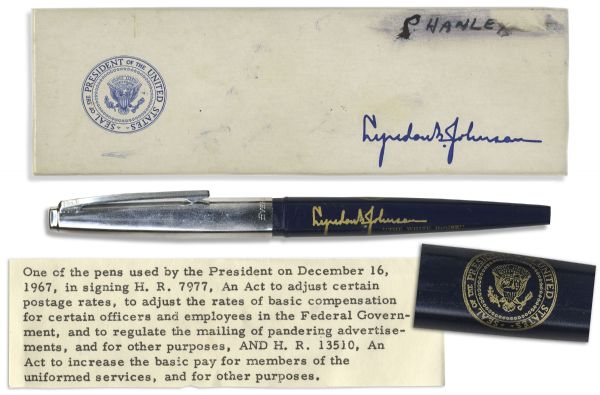 P HANLEY
SEAL OF THE PRESIDENT OF THE UNITED STATES
Lyndon B. Johnson
Lyndon B. Johnson
"THE WHITE HOUSE"
SEAL OF THE PRESIDENT OF THE UNITED STATES
One of the pens used by the President on December 16,
1967, in signing H. R. 7977, An Act to adjust certain
postage rates, to adjust the rates of basic compensation
for certain officers and employees in the Federal Govern-
ment, and to regulate the mailing of pandering advertise-
ments, and for other purposes, AND H. R. 13510, An
Act to increase the basic pay for members of the
uniformed services, and for other purposes.